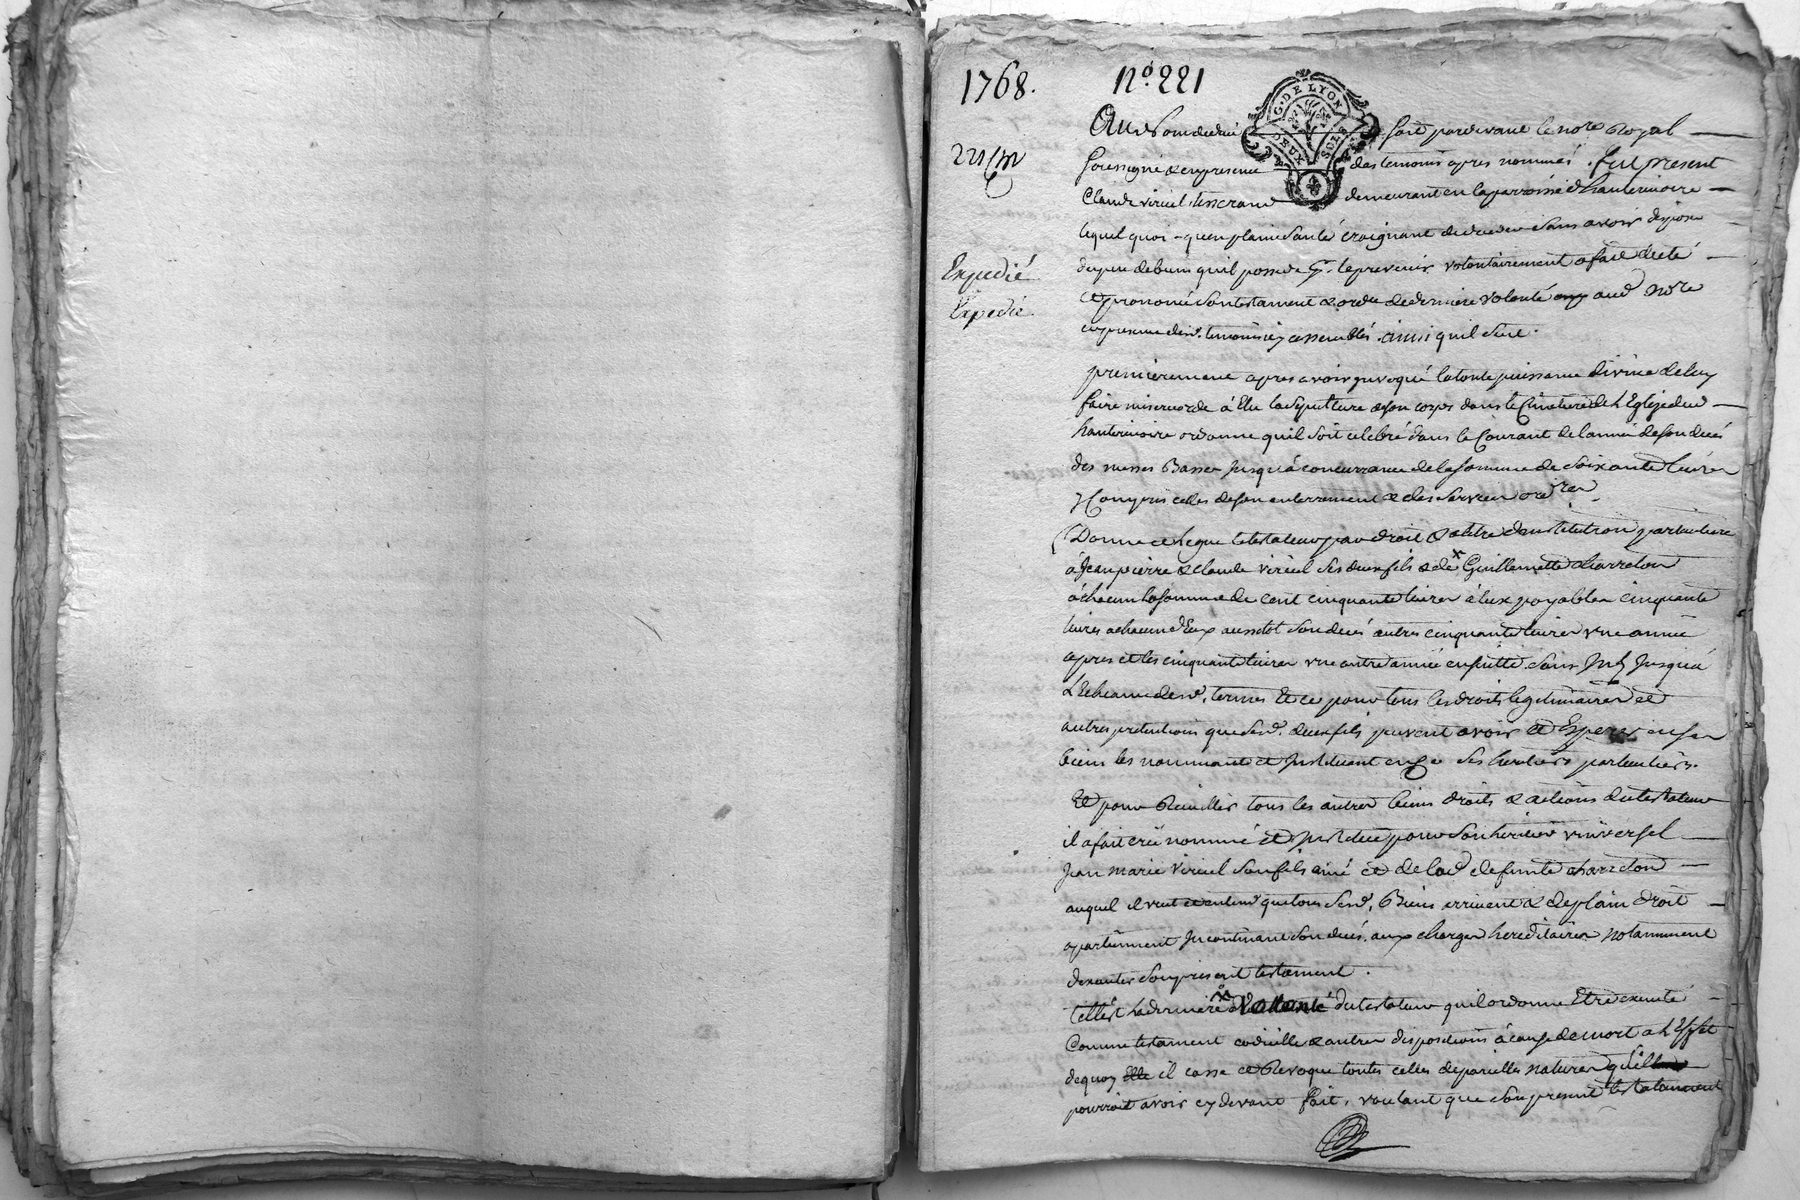 1768.
nº. 221
G. DE LYON
DEUX SOLS
Au Nom de dieu soit pardevant le no.re Royal
soussigné & en presence des temoins apres nommés. fut present
Claude viriel tisserand demeurant en la parroisse d'hauterivoire
lequel quoi-qu'en plaine santé craignant de deceder sans avoir disposé
du peu de biens qu'il possede p.r le prevenir volontairement a fait dicté
et prononcé son testament & ordce de derniere volonté aud no.re
en presence desd. temoins icy assemblés. ainsi quil suit.
Expedié
Expedié
premierement apres avoir invoqué la toute puissance divine de luy
faire misericorde à Elu la sepulture de son corps dans le Cimetiere de l'Eglize dud
hauterivoire ordonne quil soit celebré dans le Courant de l'année de son decés
des messes Basses jusqu'à concurrance de la somme de soixante livres
y Compris celles de son enterrement & des services ord.res
Donne et legue le testateur par droit & a titre d'institution particuliere
à Jean pierre & Claude viriel ses deux fils & de x Guillemette charreton
à chacun la somme de cent cinquante livres à eux payables cinquante
livres a chacun d'Eux aussitot son decés autres cinquante livres une année
apres et les cinquante livres une autre année ensuitte. sans Int. jusqu'a
L'Echeance desd. termes Et ce pour tous les droits legitimaires et
autres pretentions que sesd. deux fils peuvent avoir et Esperer en ses
biens les nommant et Instituant en ce ses heritiers particuliers.
Et pour Reuillir tous les autres biens droits & actions du testateur
il a fait créé nommé et Institué pour son heritier universel
Jean marie viriel son fils ainé et de lad defunte charreton
auquel il veut et entend que tous sesd. Biens arrivent & de plain droit
apartiennent Incontinant son decés. aux charges hereditaires notamment
d'executer son present testament.
telle est la derniere x Vollonté du testateur qu'il ordonne Etre executé
Comme testament codicille & autres dispositions à cause de mort a l'Effet
de quoy il casse et Revoque toutes celles de pareilles natures qu'il
pourroit avoir cy devant fait, voulant que son present testatament